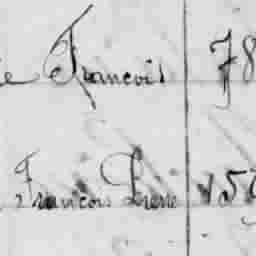 François 78
François Pierre 15